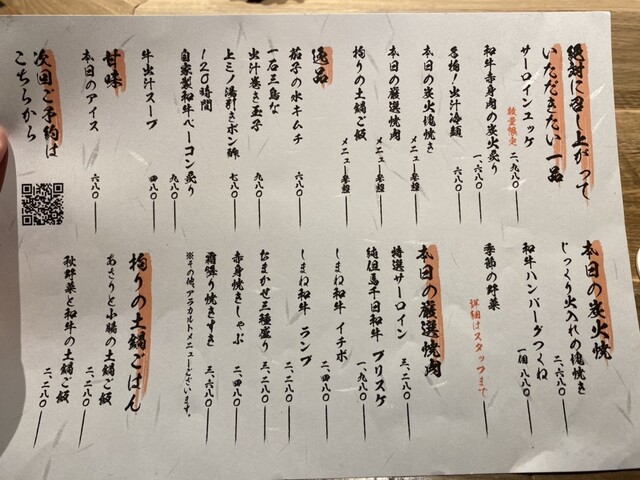 絶対に召し上がって
いただきたい一品
サーロインユッケ
数量限定
二、九八〇
和牛赤身肉の炭火炙り
一、六八〇
名物!出汁冷麺
六八〇
本日の炭火塊焼き
メニュー参照
本日の厳選焼肉
メニュー参照
拘りの土鍋ご飯
メニュー参照
逸品
茄子の水キムチ
六八〇
一石三鳥な
出汁巻き玉子
九八〇
上ミノ湯引きポン酢
七八〇
120時間
自家製和牛ベーコン炙り
九八〇
牛出汁スープ
四八〇
甘味
本日のアイス
六八〇
次回ご予約は
こちらから
本日の炭火焼
じっくり火入れの塊焼き
二、六八〇
和牛ハンバーグつくね
一個 八八〇
季節の野菜
詳細はスタッフまで
本日の厳選焼肉
特選サーロイン
三、二八〇
純但馬千日和牛 ブリスケ
一、九八〇
しまね和牛 イチボ
二、四八〇
しまね和牛 ランプ
二、二八〇
おまかせ三種盛り
三、二八〇
赤身焼きしゃぶ
二、四八〇
霜降り焼きすき
三、六八〇
※その他、アラカルトメニューございます。
拘りの土鍋ごはん
あさりと小腸の土鍋ご飯
二、二八〇
秋野菜と和牛の土鍋ご飯
二、二八〇